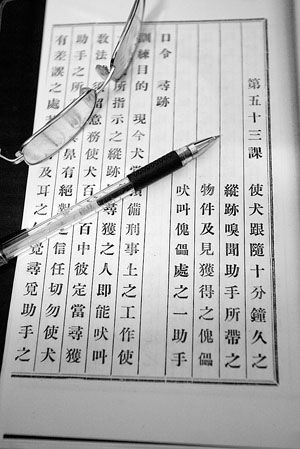 第五十三課 使犬跟隨十分鐘久之
縱跡嗅聞助手所帶之
物件及見獲得之傀儡
吠叫傀儡處之一助手
口令 尋跡
訓練目的 現今犬備刑事上之工作使
所指示之縱跡尋獲之人即能吠叫
教法留意務使犬百百中彼定當尋獲
助手之所鼻有絕之信任切勿使犬
有差誤之處及耳之覺尋覓助手之